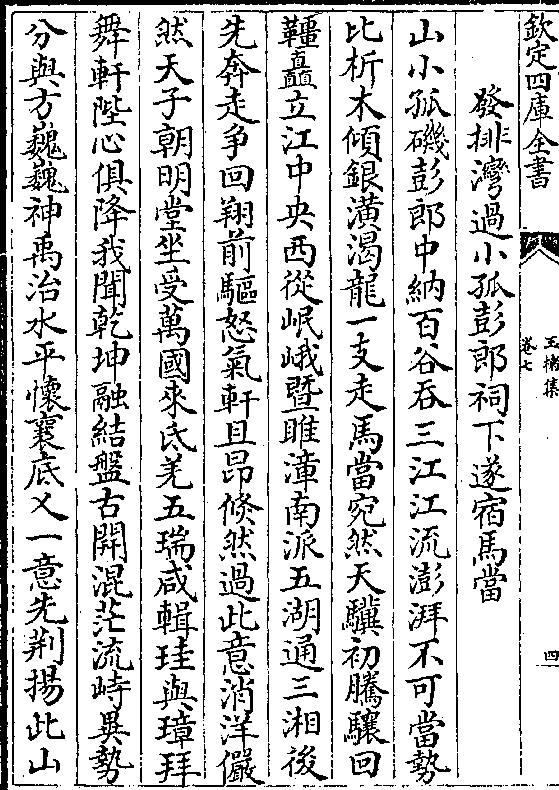 欽定四庫全書
玉楮集
卷七
四
發排灣過小孤彭郎祠下遂宿馬當
山小孤磯彭郎中納百谷吞三江江流澎湃不可當勢
比析木傾銀潢渴龍一支走馬當宛然天驥初騰驤回
韁矗立江中央西從岷峨暨雎漳南派五湖通三湘後
先奔走爭回翔前驅怒氣軒且昂倐然過此意消洋儼
然天子朝明堂坐受萬國來氐羌五瑞咸輯珪與璋拜
舞軒陛心俱降我聞乾坤融結盤古開混茫流峙異勢
分與方巍巍神禹治水平懷襄底乂一意先荆揚此山